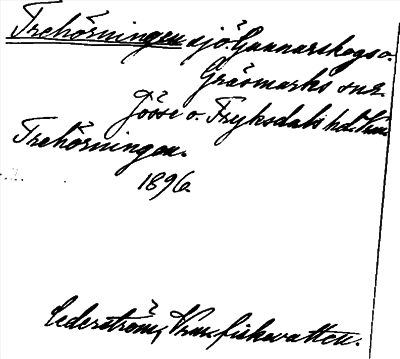 Trehörningen sjö Gunnarskogs o.
Gräsmarks snr.
Jösse o. Fryksdals hd. Vrm.
Trehörningen.
1896.
Cederström, Vrm. fiskevatten.